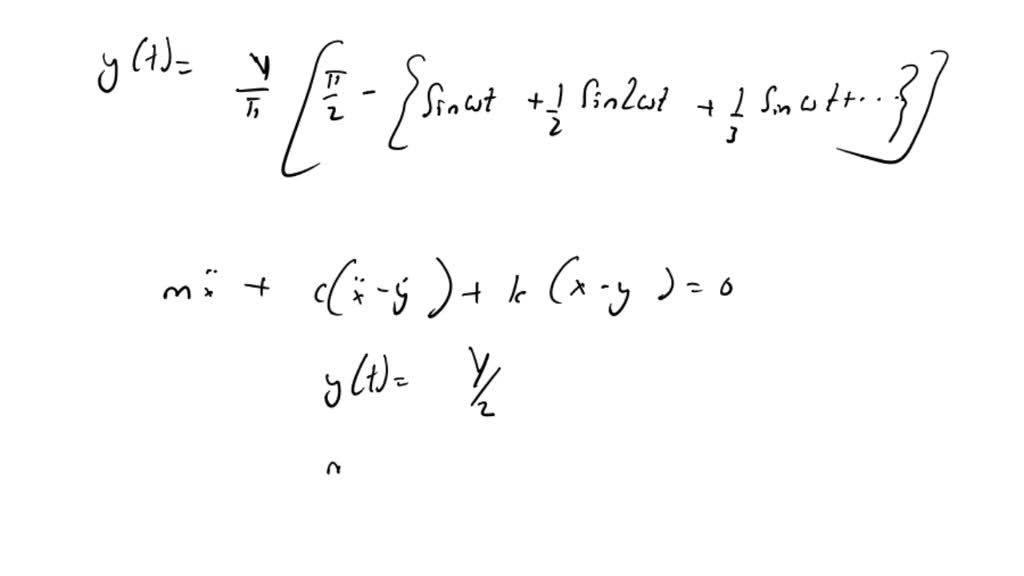 y(t)= Y/π [π/2 - {sin ωt + 1/2 sin 2ωt + 1/3 sin ωt + ...}]
mẍ + c(ẍ - ẏ) + k(x - y) = 0
y(t)= Y/2
n